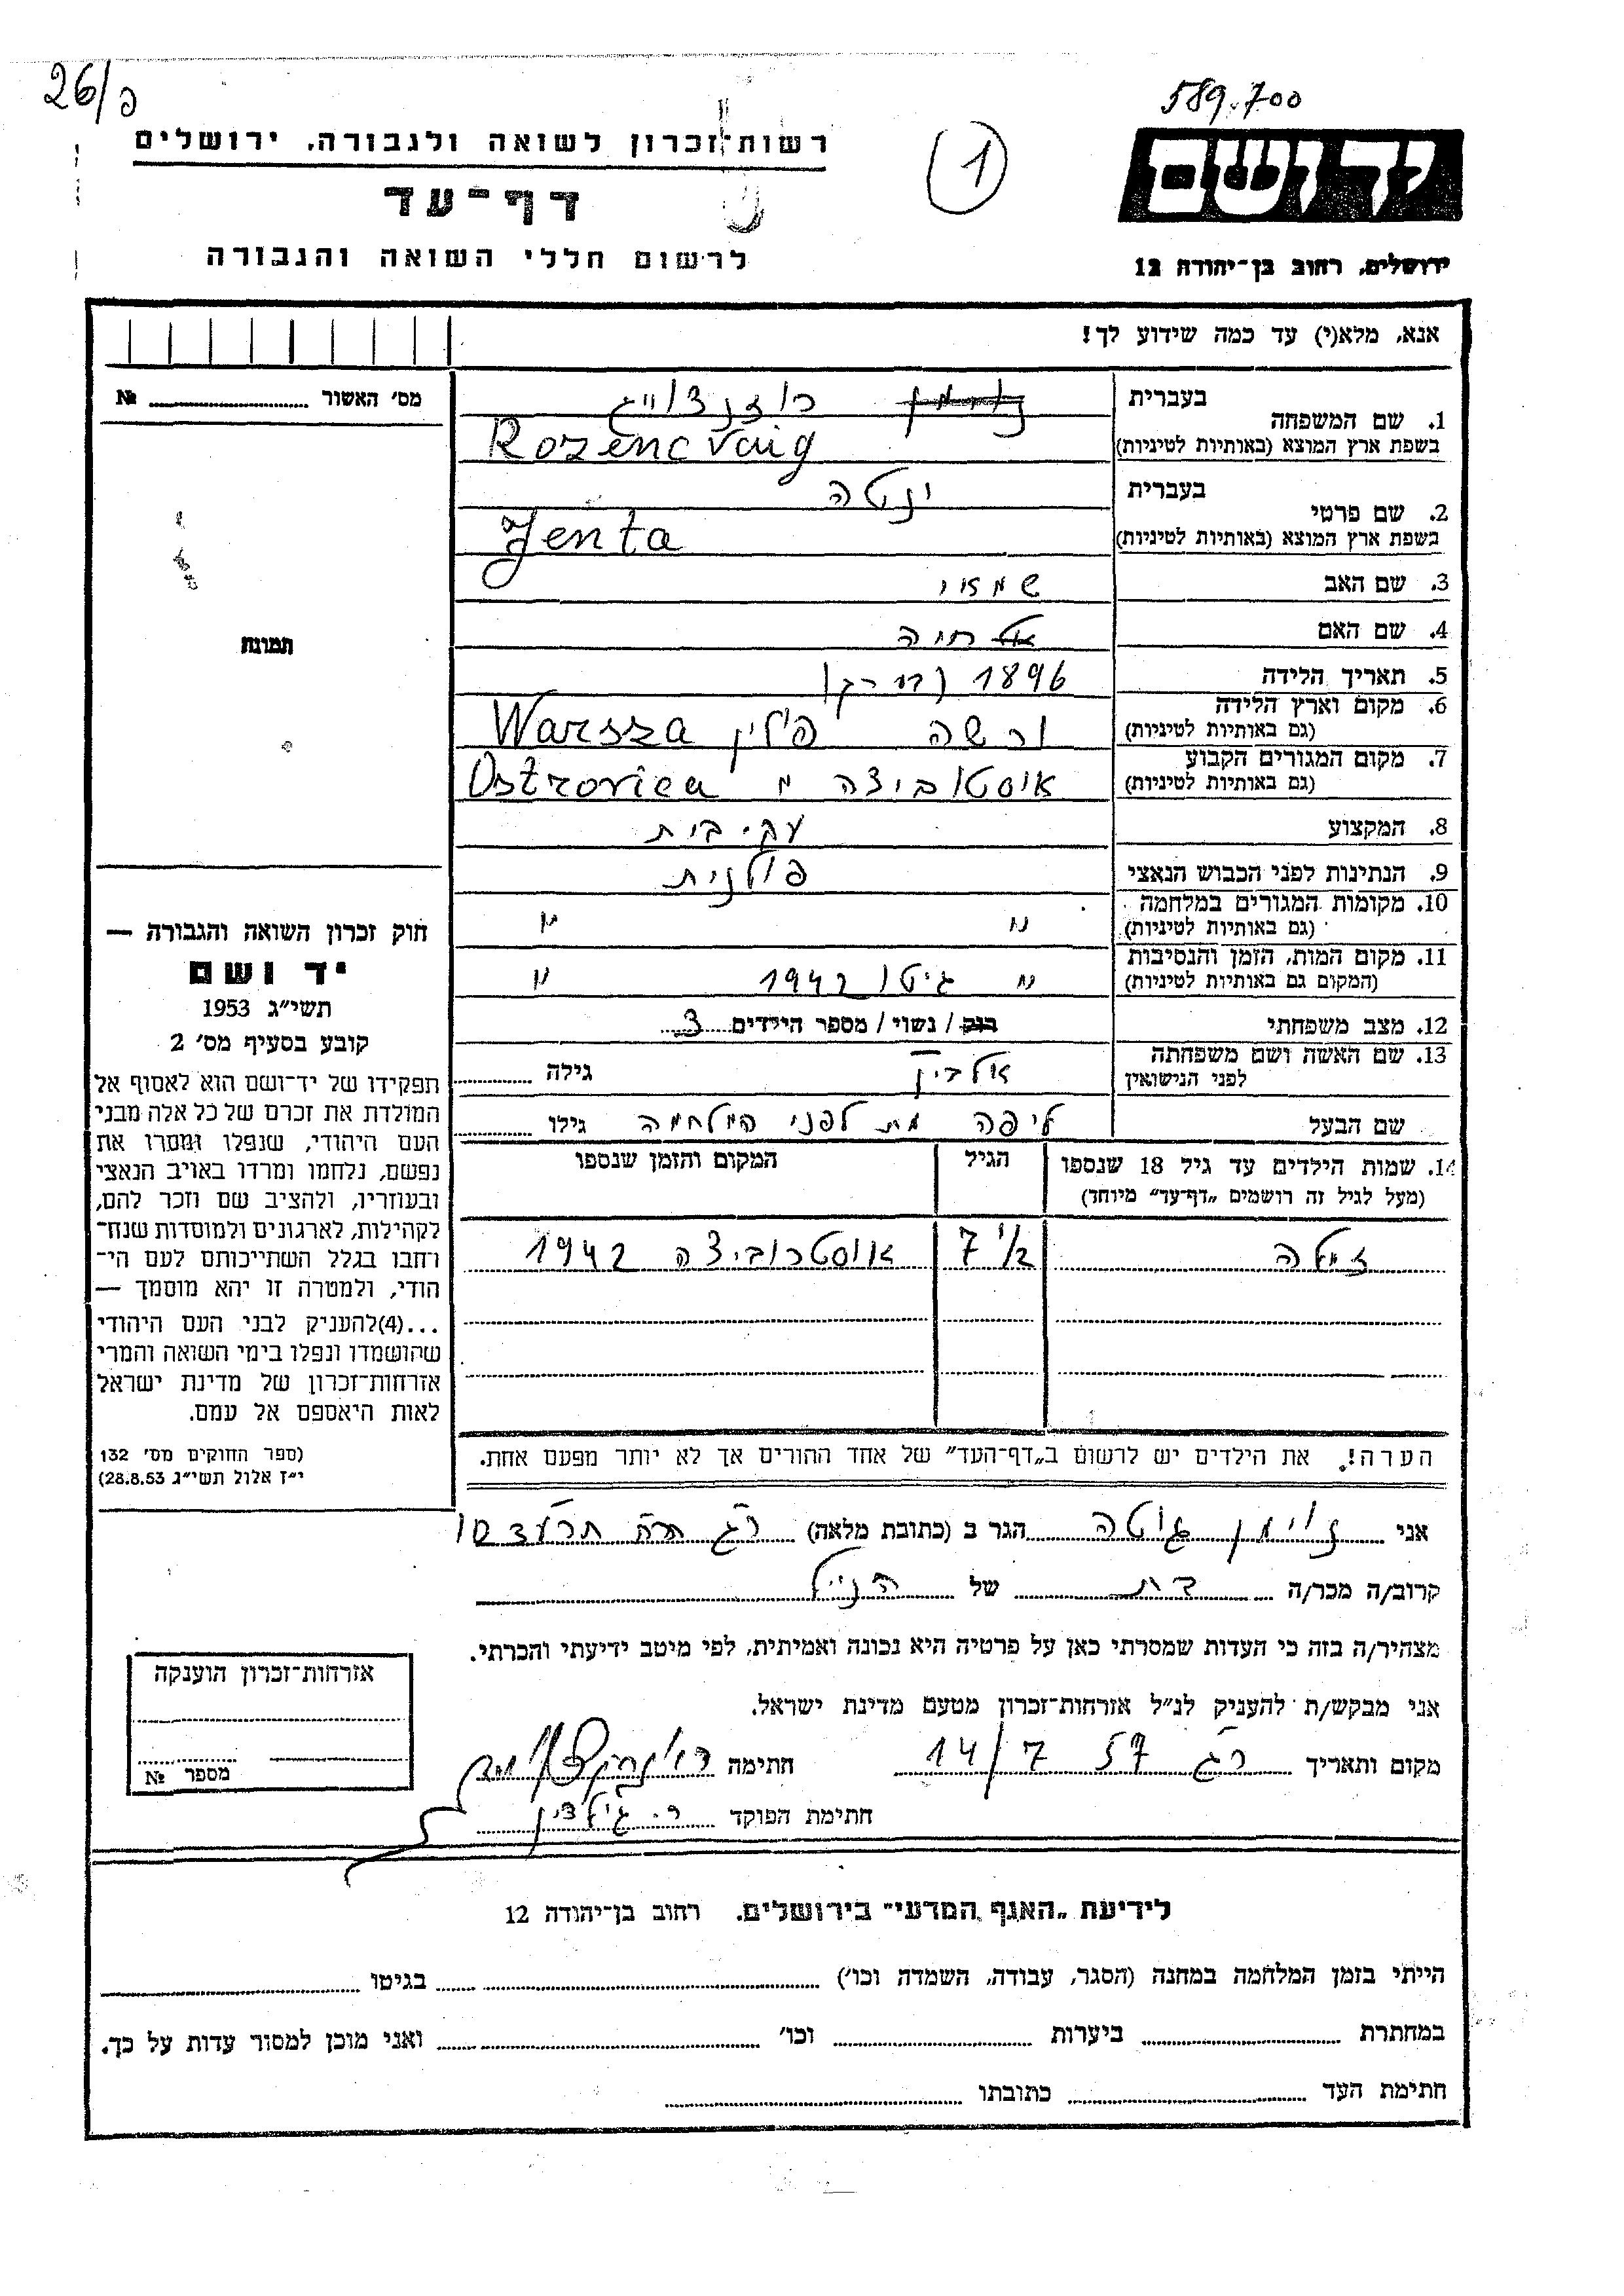 26/פ
589.700
רשות־זכרון לשואה ולגבורה, ירושלים
1
יד ושם
דף־עד
לרשום חללי השואה והגבורה
ירושלים, רחוב בן־יהודה 12
אנא, מלא(י) עד כמה שידוע לך!
מס׳ האשור № 
1. שם המשפחה
בעברית
רוזנצוייג
בשפת ארץ המוצא (באותיות לטיניות)
Rozencvaig
2. שם פרטי
בעברית
ינטה
בשפת ארץ המוצא (באותיות לטיניות)
Jenta
3. שם האב
4. שם האם חיה
5. תאריך הלידה 1896
6. מקום וארץ הלידה
(גם באותיות לטיניות)
ורשה פולין Warsza
7. מקום המגורים הקבוע
(גם באותיות לטיניות)
אוסטוביצה " Ostrovica
8. המקצוע עק. בית
9. הנתינות לפני הכבוש הנאצי פולנית
10. מקומות המגורים במלחמה
(גם באותיות לטיניות)
" "
11. מקום המות, הזמן והנסיבות
(המקום גם באותיות לטיניות)
" גיטו 1942 "
12. מצב משפחתי רווק / נשוי / מספר הילדים 3
13. שם האשה ושם משפחתה
לפני הנישואין
גילה
שם הבעל ליפה מת לפני המלחמה גילו
14. שמות הילדים עד גיל 18 שנספו
(מעל לגיל זה רושמים „דף־עד” מיוחד)
הגיל
המקום והזמן שנספו
7 אוסטרוביצה 1942
הערה! את הילדים יש לרשום ב„דף־העד” של אחד ההורים אך לא יותר מפעם אחת.
תמונה
חוק זכרון השואה והגבורה —
יד ושם
תשי״ג 1953
קובע בסעיף מס׳ 2
תפקידו של יד־ושם הוא לאסוף אל
המולדת את זכרם של כל אלה מבני
העם היהודי, שנפלו ומסרו את
נפשם, נלחמו ומרדו באויב הנאצי
ובעוזריו, ולהציב שם וזכר להם,
לקהילות, לארגונים ולמוסדות שנח־
רחבו בגלל השתייכותם לעם הי־
הודי, ולמטרה זו יהא מוסמך —
...(4)להעניק לבני העם היהודי
שהושמדו ונפלו בימי השואה והמרי
אזרחות־זכרון של מדינת ישראל
לאות היאספם אל עמם.
(ספר החוקים מס׳ 132
י״ז אלול תשי״ג 28.8.53)
אני נוימן גוטה הגר ב (כתובת מלאה) רג
קרוב/ה מכר/ה בת של הנ״ל
מצהיר/ה בזה כי העדות שמסרתי כאן על פרטיה היא נכונה ואמיתית, לפי מיטב ידיעתי והכרתי.
אני מבקש/ת להעניק לנ״ל אזרחות־זכרון מטעם מדינת ישראל.
מקום ותאריך רג 14/7 57 חתימה
חתימת הפוקד
אזרחות־זכרון הוענקה
מספר №
לידיעת „האגף המדעי” בירושלים, רחוב בן־יהודה 12
הייתי בזמן המלחמה במחנה (הסגר, עבודה, השמדה וכו׳) בגיטו
במחתרת ביערות וכו׳ ואני מוכן למסור עדות על כך.
חתימת העד כתובתו